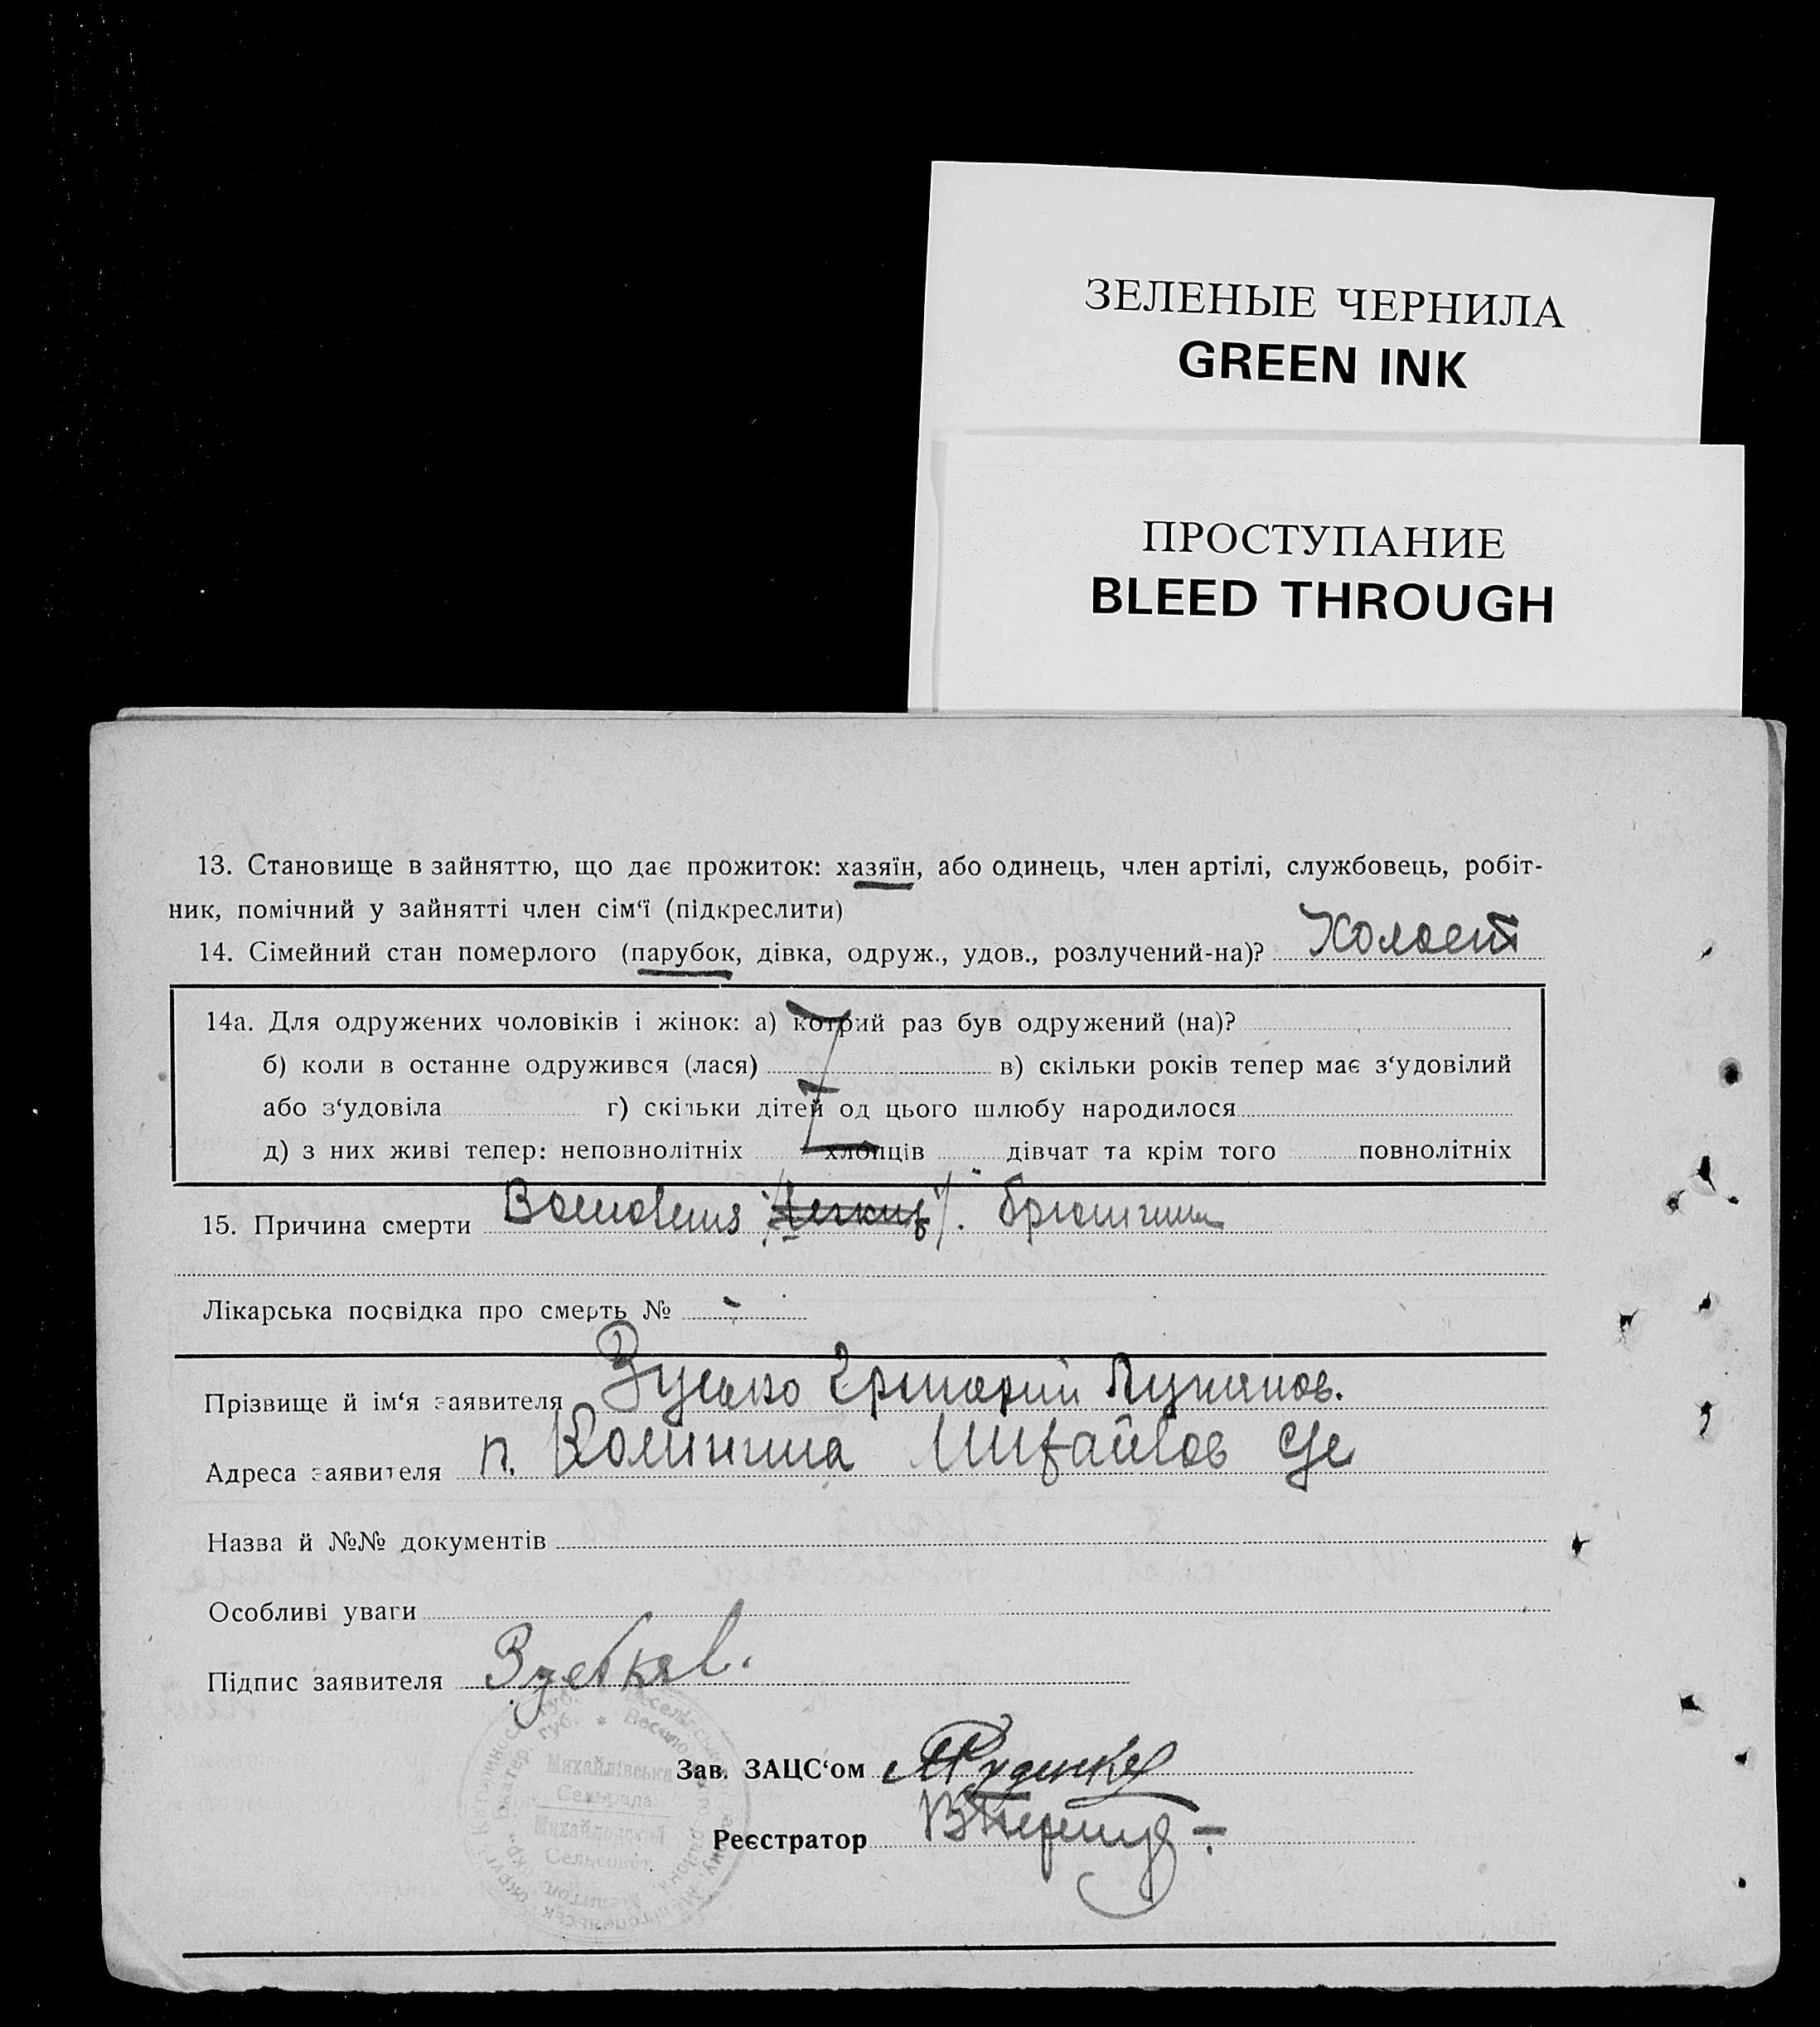 ЗЕЛЕНЫЕ ЧЕРНИЛА
GREEN INK
ПРОСТУПАНИЕ
BLEED THROUGH
13. Становище в зайняттю, що дає прожиток: хазяїн, або одинець, член артілі, службовець, робіт-
ник, помічний у зайнятті член сім‘ї (підкреслити)
14. Сімейний стан померлого (парубок, дівка, одруж., удов., розлучений-на)? Холост
14а. Для одружених чоловіків і жінок: а) котрий раз був одружений (на)?
б) коли в останне одружився (лася) в) скільки років тепер має з‘удовілий
або з‘удовіла г) скільки дітей од цього шлюбу народилося
д) з них живі тепер: неповнолітніх хлопців дівчат та крім того повнолітніх
15. Причина смерти
Лікарська посвідка про смерть №
Прізвище й ім‘я заявителя
Адреса заявителя п. Михайлов
Назва й №№ документів
Особливі уваги
Підпис заявителя
Михайлівська
Сельрада
Михайловский
Сельсовет
Зав. ЗАЦС‘ом Руденко
Реєстратор